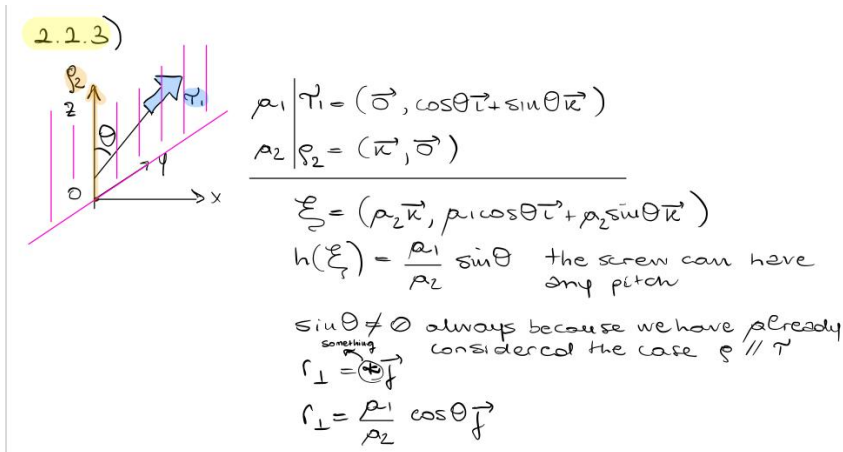 2.2.3)
ρ2
z
θ
τ1
y
O
x
μ1 | τ1 = (0⃗, cosθ i⃗ + sinθ k⃗)
μ2 | ρ2 = (k⃗, 0⃗)
ξ = (μ2 k⃗, μ1 cosθ i⃗ + μ2 sinθ k⃗)
h(ξ) = μ1/μ2 sinθ the screw can have
any pitch
sinθ ≠ 0 always because we have already
considered the case ρ // τ
something
r⊥ = * j⃗
r⊥ = μ1/μ2 cosθ j⃗